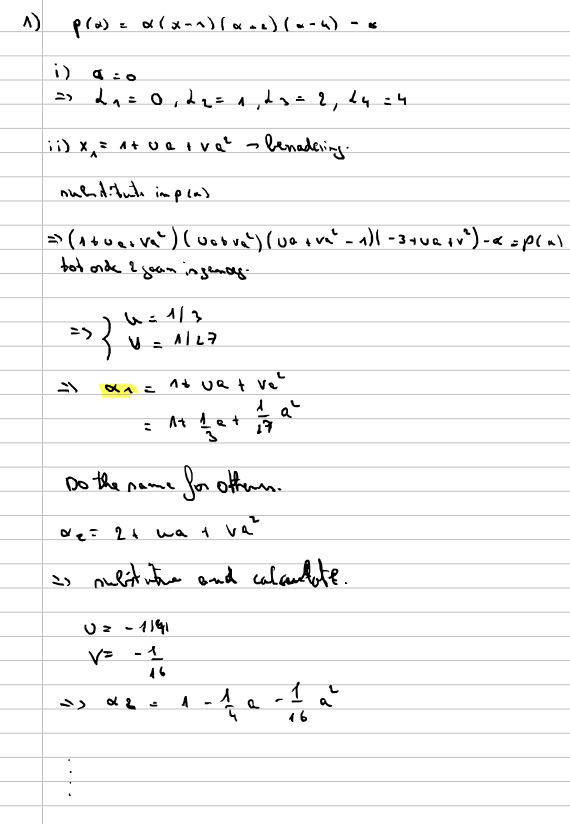 1) p(α) = α(x-1)(α-2)(α-4) - α
i) a = 0
=> α1 = 0, α2 = 1, α3 = 2, α4 = 4
ii) x1 = 1 + ua + va² → benadering.
substitute in p(α)
=> (1+ua+va²)(ua+va²)(ua+va²-1)(-3+ua+v²)-α = p(α)
tot orde 2 gaan is genoeg.
=> { u = 1/3
v = 1/27
=> α1 = 1 + ua + va²
= 1 + 1/3 a + 1/27 a²
Do the same for others.
α2 = 2 + ua + va²
=> substitute and calculate.
U = -1/4
V = -1/16
=> α2 = 1 - 1/4 a - 1/16 a²